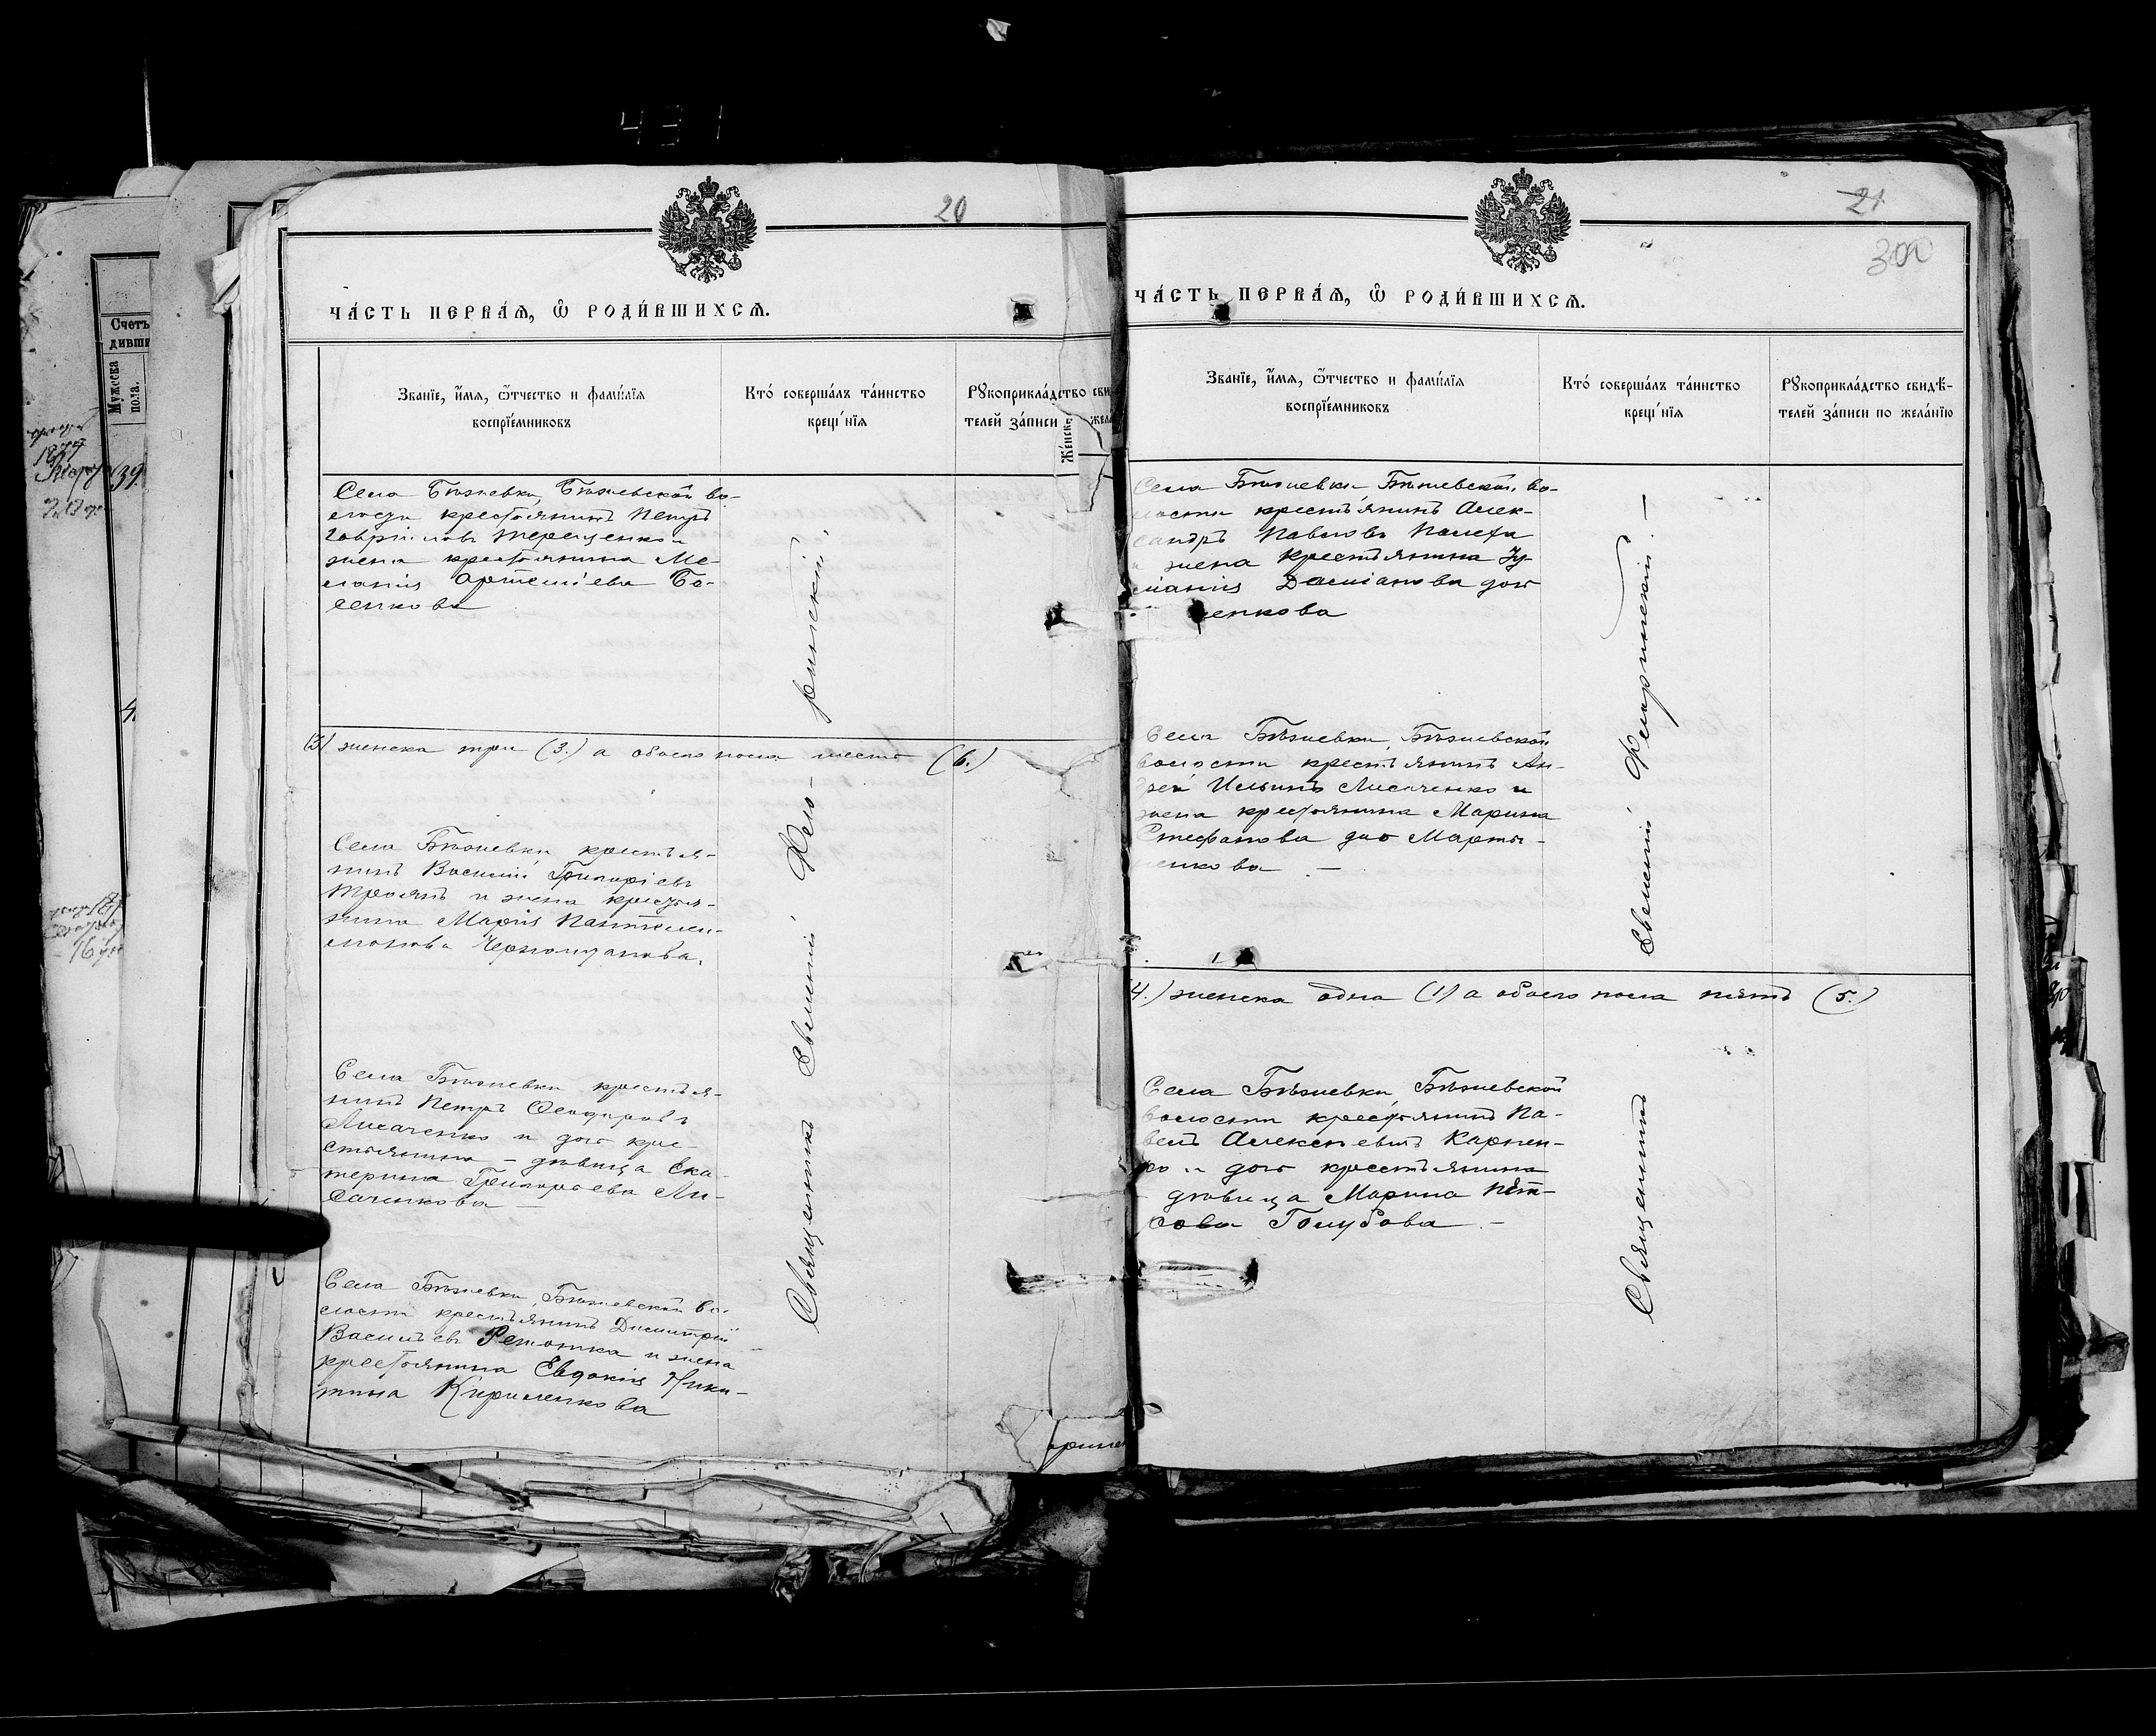 431
20
ЧА́СТЬ ПЕРВА́Ѧ, Ѡ҆ РОДИ́ВШИХСѦ.
Зва́нїе, и҆́мѧ, ѻ҆́тчество и фами́лїѧ
воспрїе́мниковъ
Кто̀ соверша́лъ та́инство
креще́нїѧ
Рꙋкоприкла́дство сви
телей за́писи
Женск.
жела
Села Бѣжевки, Бѣжевской во-
лости крестьянинъ Петръ
Гавріиловъ Терещенко и
жена крестьянина Ме-
ланія Артеміева Бо-
сенкова
(3) женска три (3.) а обоего пола шесть (6.)
Села Бѣжевки крестья-
нинъ Василій Григоріевъ
Троянъ и жена крестья-
нина Марія Пантелеи-
монова Черноштанова.
Села Бѣжевки крестья-
нинъ Петръ Ѳеодоровъ
Лисаченко и дочь кре-
стьянина - дѣвица Ека-
терина Григорьева Ли-
саченкова -
Села Бѣжевки, Бѣжевской во-
лости крестьянинъ Димитрій
Васильевъ и жена
крестьянина Евдокія Ники-
тина Кириленкова
Священникъ Евменій
Счетъ
дивши
Мужеска
пола.
39.
4.
21
300
ЧА́СТЬ ПЕРВА́Ѧ, Ѡ҆ РОДИ́ВШИХСѦ.
Зва́нїе, и҆́мѧ, ѻ҆́тчество и фами́лїѧ
воспрїе́мниковъ
Кто̀ соверша́лъ та́инство
креще́нїѧ
Рꙋкоприкла́дство свидѣ́-
телей за́писи по жела́нїю
Села Бѣжевки Бѣжевской во-
лости крестьянинъ Алек-
сандръ Павловъ
жена крестьянина Іу-
ліанія Даміанова дочь
енкова
Села Бѣжевки, Бѣжевской
волости крестьянинъ Ан-
дрей Ильинъ Лисаченко и
жена крестьянина Марина
Стефанова дочь Марты-
ненкова. -
4.) женска одна (1) а обоего пола пять (5.)
Села Бѣжевки, Бѣжевской
волости крестьянинъ Па-
велъ Алексѣевичъ Карпен-
ко и дочь крестьянина
дѣвица Марина Пет-
рова Голубова. -
Священникъ Евменій